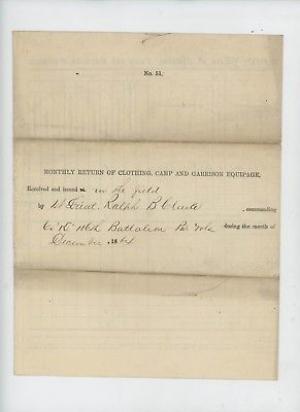 No. 51.
MONTHLY RETURN OF CLOTHING, CAMP AND GARRISON EQUIPAGE,
Received and issued at in the field
by 1st Lieut. Ralph B. , commanding
Co "D" Battalion Pa Vols during the month of
December, 1864